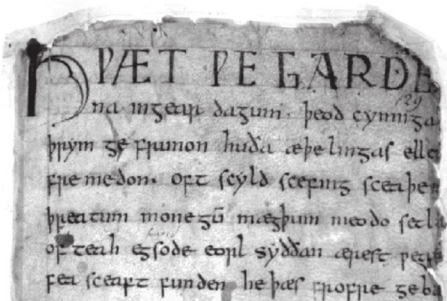 HǷÆT ǷE GARDE
129
na ingear dagum. þeod cyninga
þrym ge frunon huða æþelingas elle
fremedon. oft scyld scefing sceaþe
þreatum monegū mægþum meodo setla
of teah egsode eorl syððan ærest ƿea
fea sceaft funden he þæs frofre geba